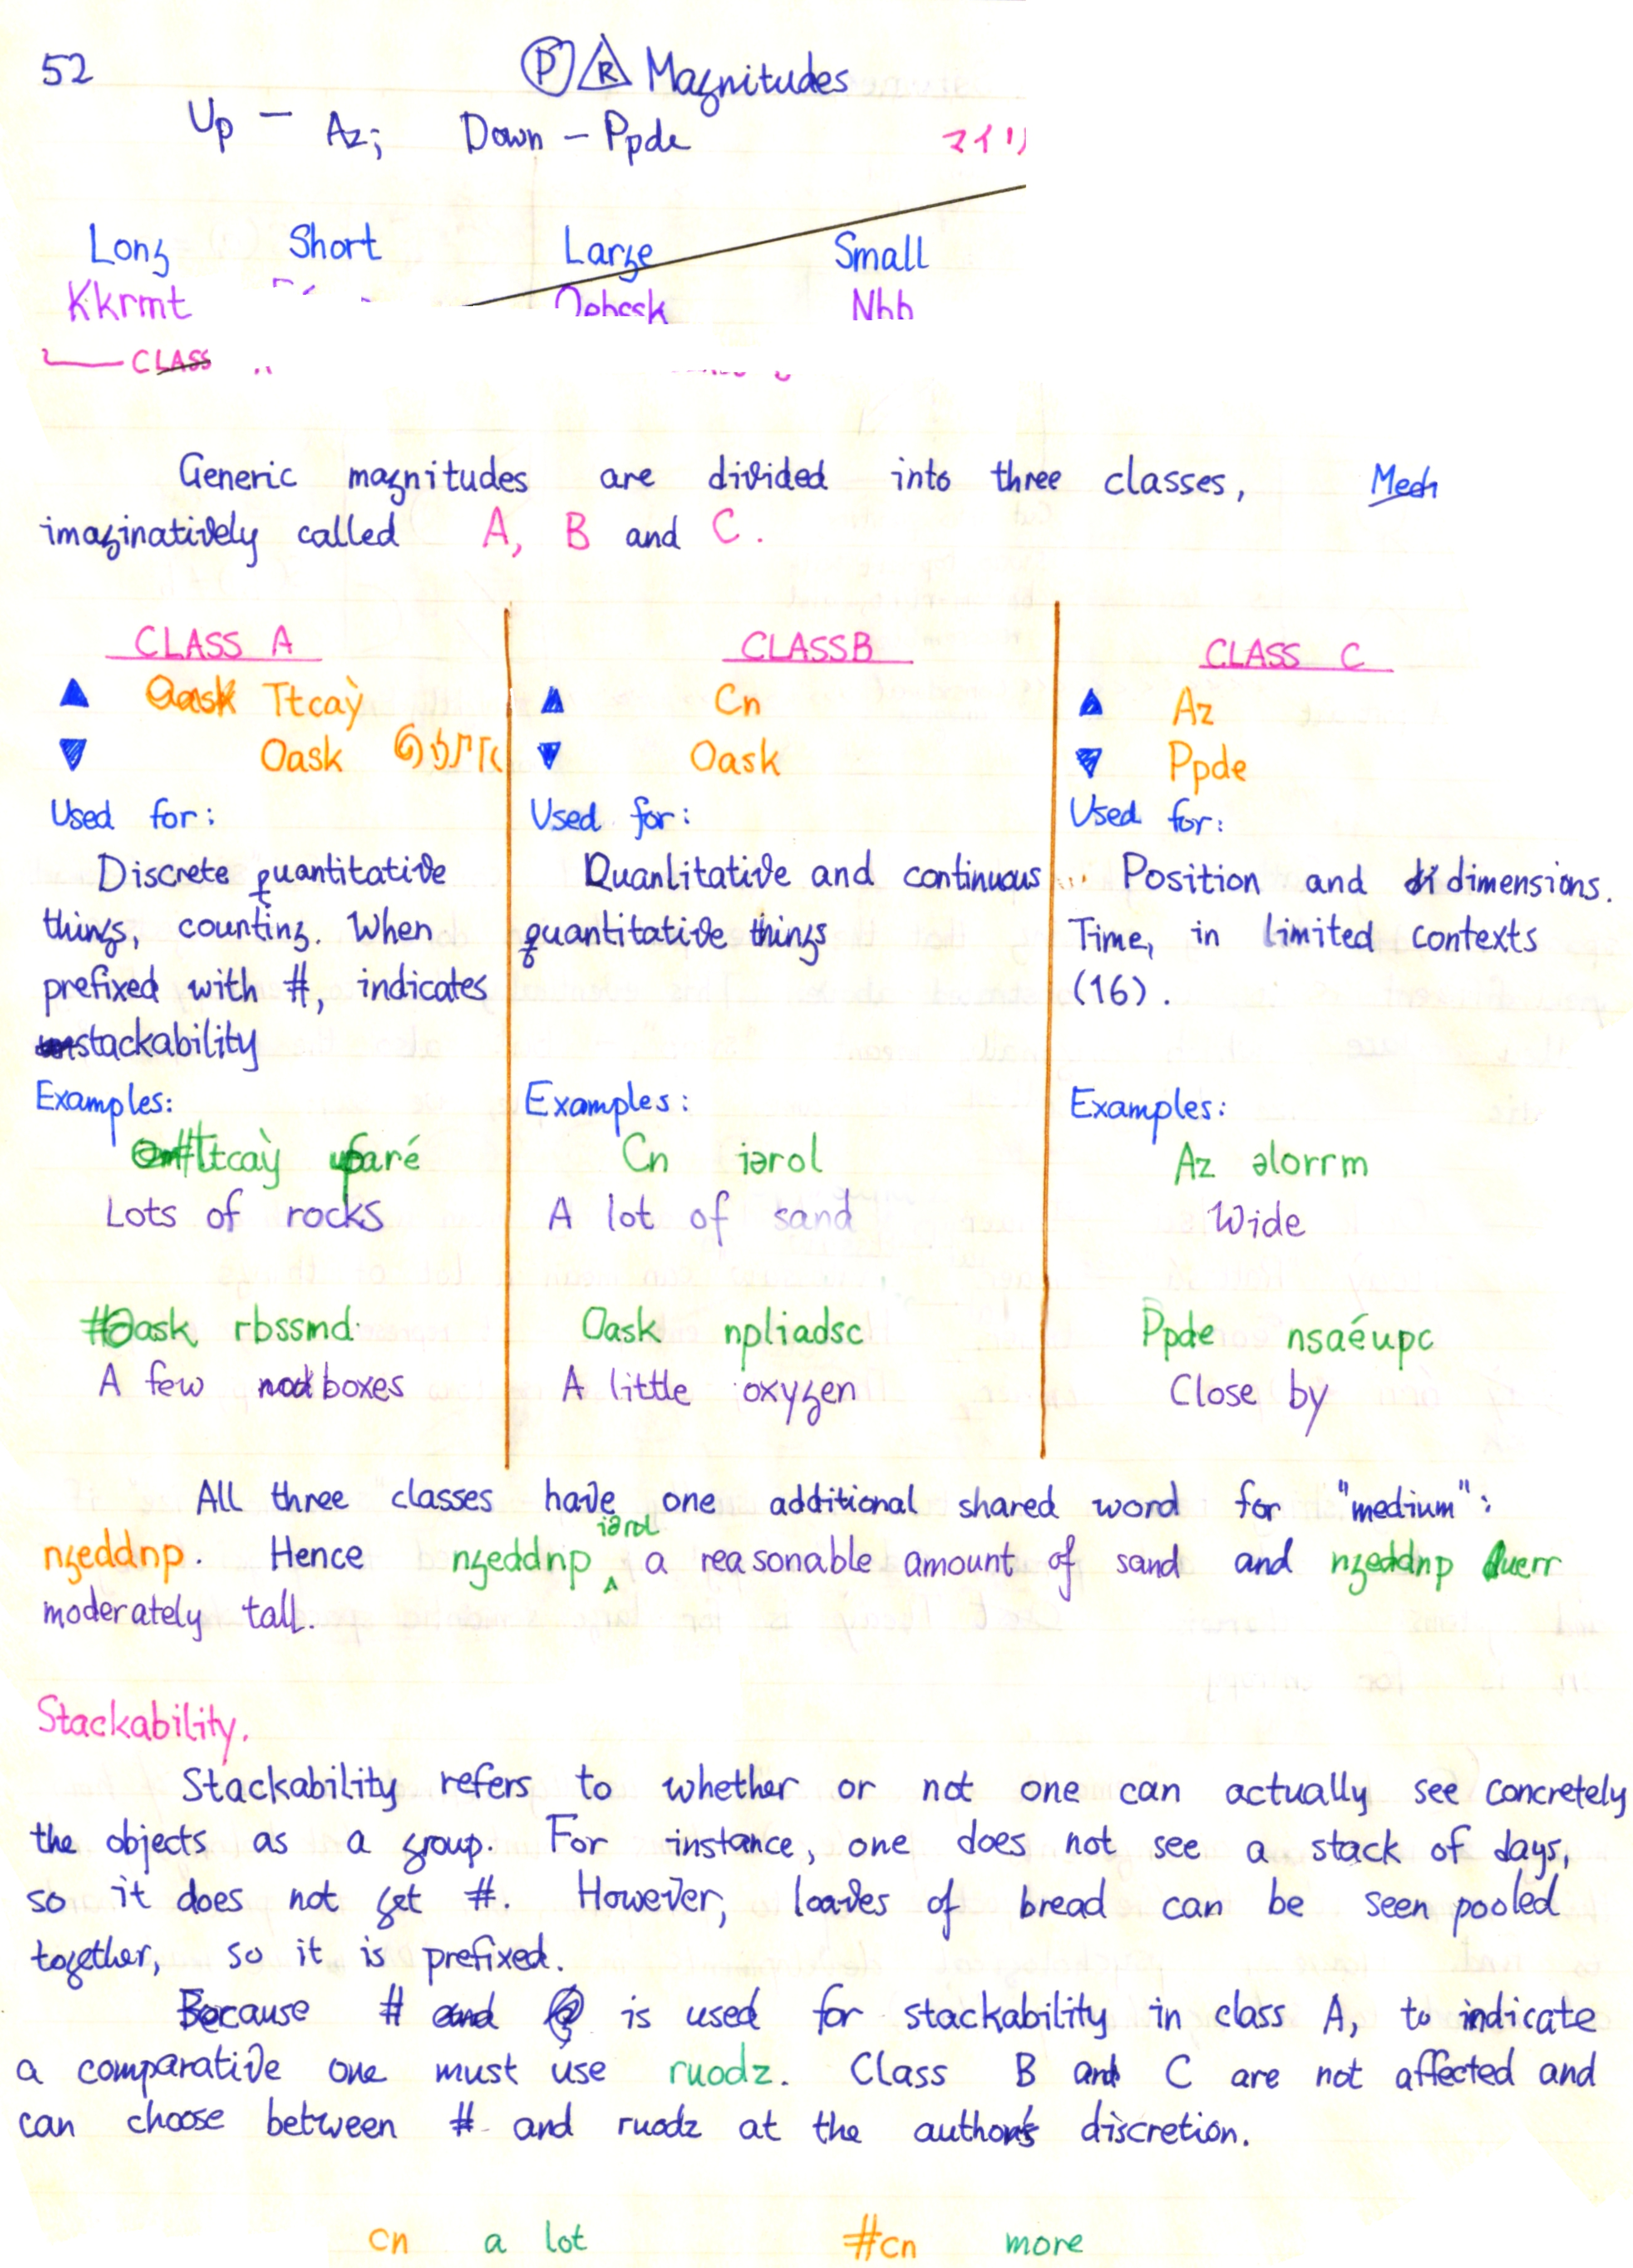 52
Ⓟ R Magnitudes
Up – Az; Down – Ppde
マイリ
Long Short Large Small
Kkrmt
CLASS
Generic magnitudes are divided into three classes, Mech
imaginatively called A, B and C.
CLASS A
▲ Ttcaỳ
▼ Oask
Used for:
Discrete quantitative
things, counting. When
prefixed with #, indicates
stackability
Examples:
#Ttcaỳ faré
Lots of rocks
#Oask rbssmd
A few boxes
CLASS B
▲ Cn
▼ Oask
Used for:
Quanlitative and continuous
quantitative things
Examples:
Cn iərol
A lot of sand
Oask npliadsc
A little oxygen
CLASS C
▲ Az
▼ Ppde
Used for:
Position and dimensions.
Time, in limited contexts
(16).
Examples:
Az əlorrm
Wide
Ppde nsaéupc
Close by
All three classes have one additional shared word for "medium":
ngeddnp. Hence ngeddnp iərol a reasonable amount of sand and ngeddnp
moderately tall.
Stackability.
Stackability refers to whether or not one can actually see concretely
the objects as a group. For instance, one does not see a stack of days,
so it does not get #. However, loaves of bread can be seen pooled
together, so it is prefixed.
Because # is used for stackability in class A, to indicate
a comparative one must use ruodz. Class B and C are not affected and
can choose between # and ruodz at the author's discretion.
cn a lot #cn more